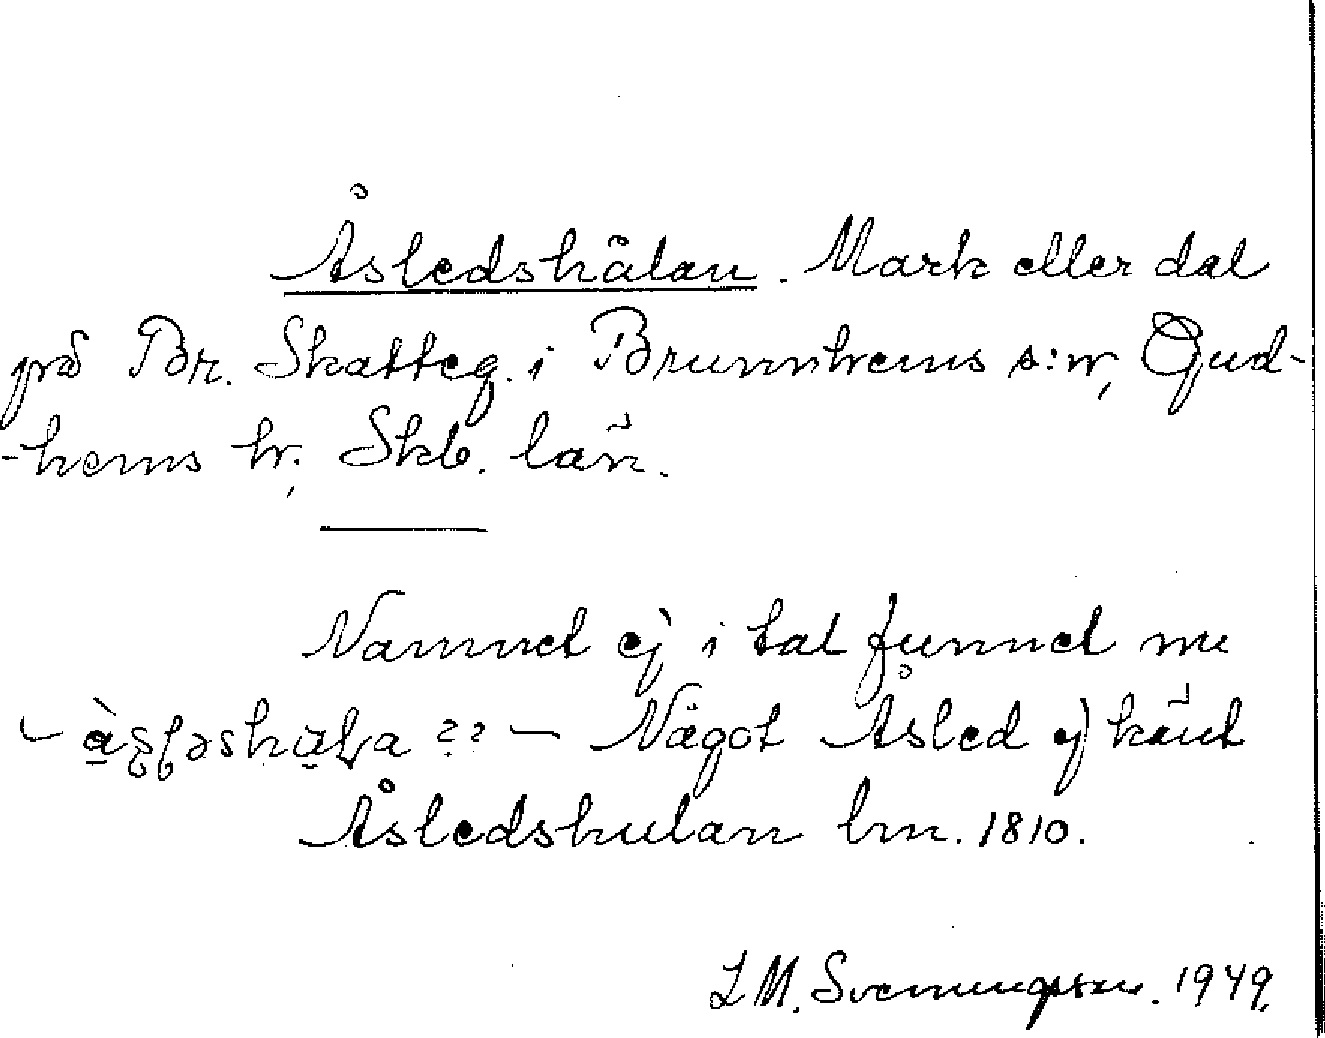 Åsledshålan. Mark eller dal
på Br. Skatteg. i Brunnhems s:n, Gud-
-hems hr. Skb. län.
Namnet ej i tal funnet nu
Något Åsled ej känt
Åsledshulan lm. 1810.
L M. Svenungsson. 1949.